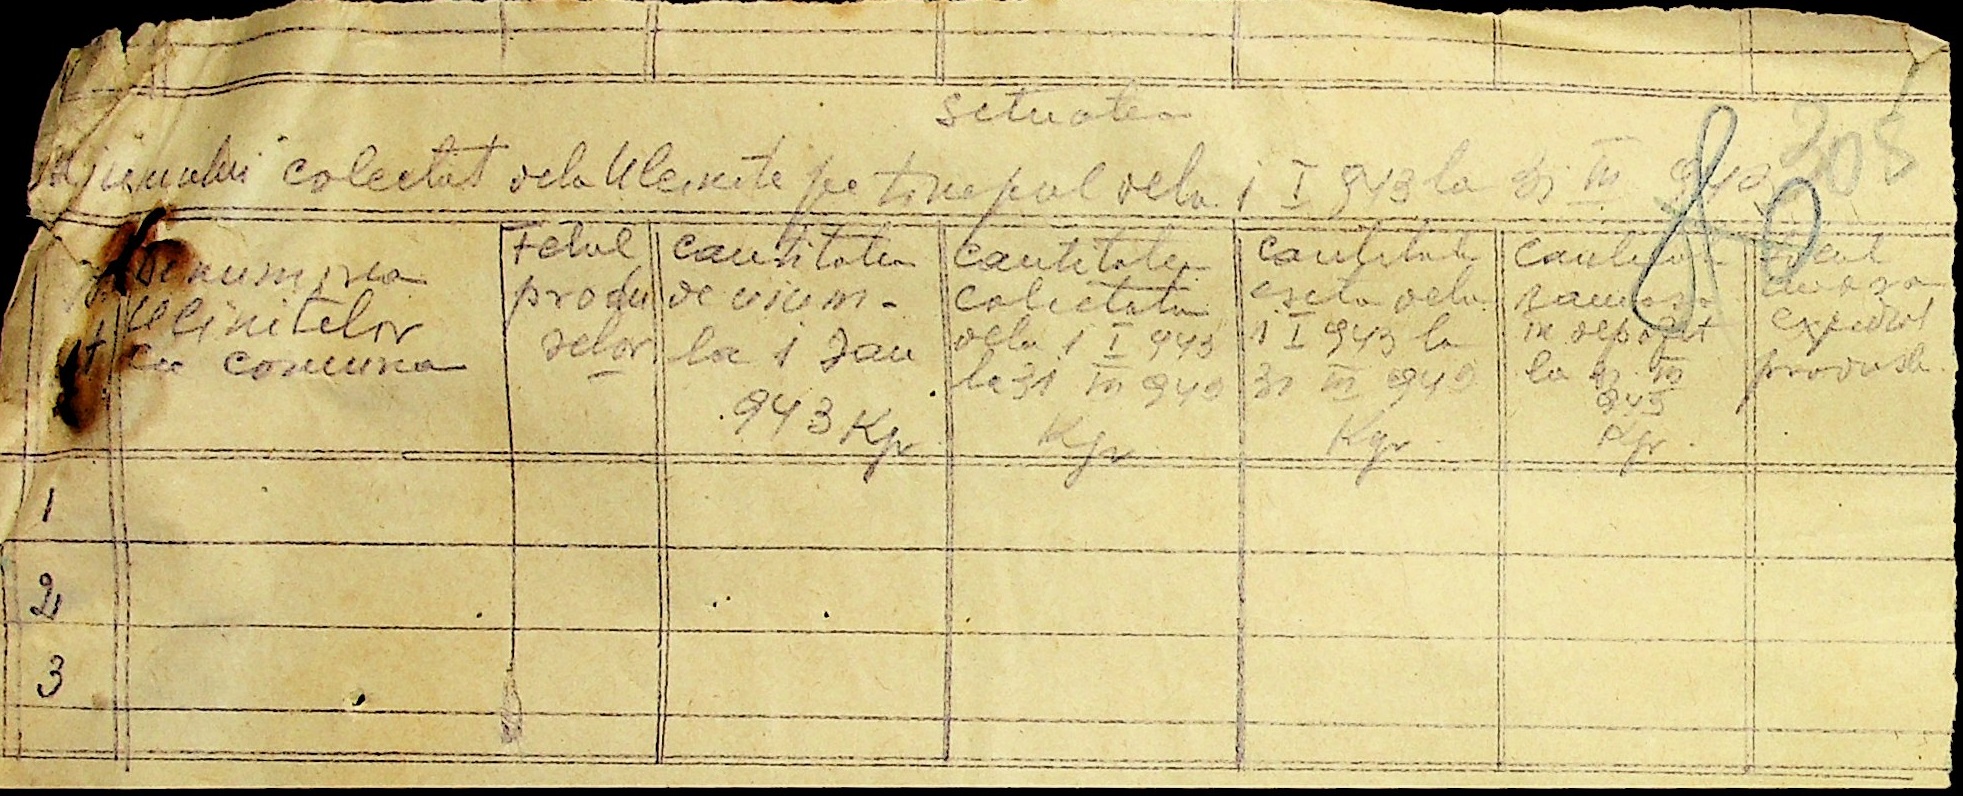 situatia
Ujumului colectat dela Uleinite pe timpul dela 1 I 943 la 31 III 943
308
80
Denumirea
Uleinitelor
cu comuna
Felul
produ
selor
cantitatea
de uium
la 1 Jan
943 Kgr
cantitatea
colectata
dela 1 I 943
la 31 III 943
Kgr
cantitate
dela
1 I 943 la
31 III 943
Kgr
ramasa
in depozit
la 31 III
943
Kgr.
expediat
produsele
1
2
3